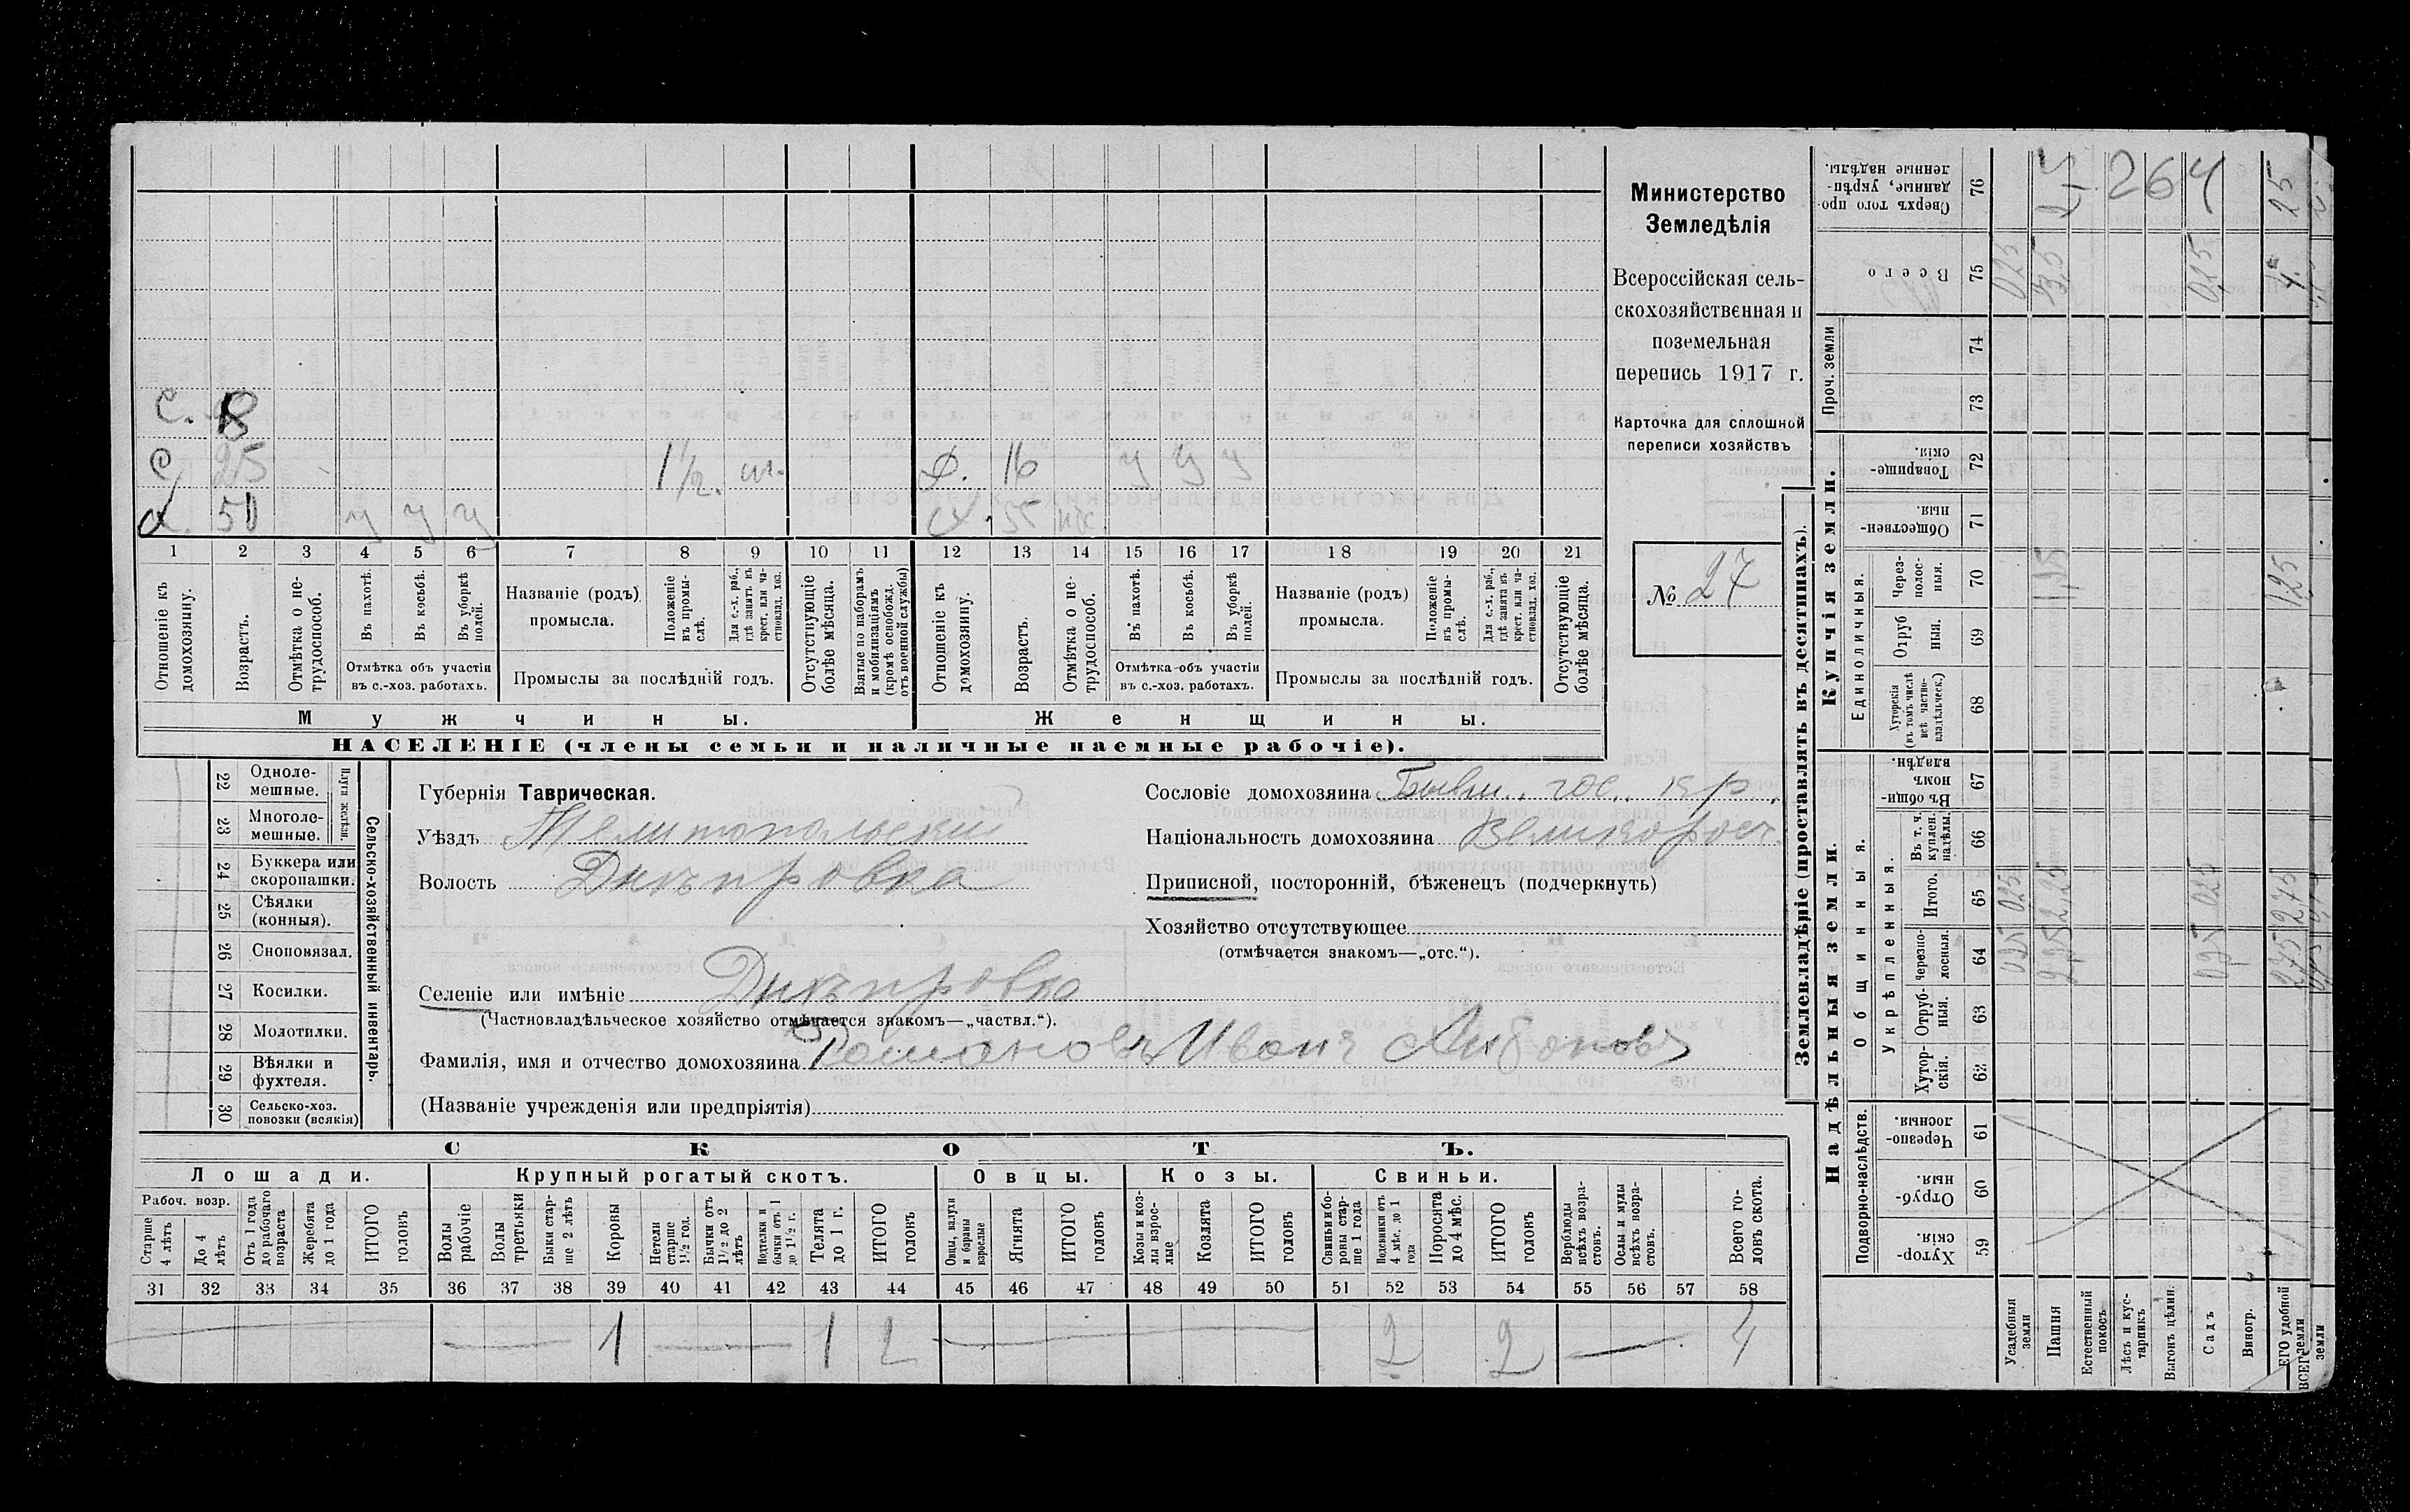 Министерство
Земледѣлія
Всероссійская сель-
скохозяйственная и
поземельная
перепись 1917 г.
Карточка для сплошной
переписи хозяйствъ
№ 27
с. 8
с 25 1 1/2.
Д. 16 у у у
50 у у у
55
1 2 3 4 5 6 7 8 9 10 11 12 13 14 15 16 17 18 19 20 21
Отношеніе къ домохозяину.
Возрастъ.
Отмѣтка о не-трудоспособ.
Въ пахотѣ.
Въ косьбѣ.
Въ уборкѣ полей.
Отмѣтка объ участіи
въ с.-хоз. работахъ.
Названіе (родъ)
промысла.
Положеніе въ промы-слѣ.
Для с.-х. раб., гдѣ занятъ въ крест. или ча-стновлад. хоз.
Промыслы за послѣдній годъ.
Отсутствующіе болѣе мѣсяца.
Взятые по наборамъ и мобилизаціямъ (кромѣ освобожд. отъ военной службы)
Отношеніе къ домохозяину.
Возрастъ.
Отмѣтка о не-трудоспособ.
Въ пахотѣ.
Въ косьбѣ.
Въ уборкѣ полей.
Отмѣтка объ участіи
въ с.-хоз. работахъ.
Названіе (родъ)
промысла.
Положеніе въ промы-слѣ.
Для с.-х. раб., гдѣ занята въ крест. или ча-стновлад. хоз.
Промыслы за послѣдній годъ.
Отсутствующіе болѣе мѣсяца.
Мужчины.
Женщины.
НАСЕЛЕНІЕ (члены семьи и наличные наемные рабочіе).
Сельско-хозяйственный инвентарь.
Плуги желѣзн.
22 Однолемешные.
23 Многолемешные.
24 Буккера или скоропашки.
25 Сѣялки (конныя).
26 Сноповязал.
27 Косилки.
28 Молотилки.
29 Вѣялки и фухтеля.
30 Сельско-хоз. повозки (всякія)
Губернія Таврическая.
Уѣздъ Мелитопольскій
Волость Днѣпровка
Селеніе или имѣніе Днѣпровка
(Частновладѣльческое хозяйство отмѣчается знакомъ—„частвл.“).
Фамилія, имя и отчество домохозяина Романовъ Иванъ
(Названіе учрежденія или предпріятія)
Сословіе домохозяина Бывш. гос. кр.
Національность домохозяина Великорос.
Приписной, посторонній, бѣженецъ (подчеркнуть)
Хозяйство отсутствующее
(отмѣчается знакомъ—„отс.“).
СКОТЪ.
Лошади. Крупный рогатый скотъ. Овцы. Козы. Свиньи.
Рабоч. возр.
Старше 4 лѣтъ
До 4 лѣтъ
Отъ 1 года до рабочаго возраста
Жеребята до 1 года
ИТОГО головъ
Волы рабочіе
Волы третьяки
Быки стар-ше 2 лѣтъ
Коровы
Нетели старше 1½ год.
Бычки отъ 1½ до 2 лѣтъ
Подтелки и бычки отъ 1 до 1½ г.
Телята до 1 г.
ИТОГО головъ
Овцы, валухи и бараны взрослые
Ягнята
ИТОГО головъ
Козы и коз-лы взрос-лые
Козлята
ИТОГО головъ
Свиньи и бо-ровы стар-ше 1 года
Подсвинки отъ 4 мѣс. до 1 года
Поросята до 4 мѣс.
ИТОГО головъ
Верблюды всѣхъ возра-стовъ.
Ослы и мулы всѣхъ возра-стовъ.
Всего го-ловъ скота.
31 32 33 34 35 36 37 38 39 40 41 42 43 44 45 46 47 48 49 50 51 52 53 54 55 56 57 58
1 1 2 2 2 4
Землевладѣніе (проставлять въ десятинахъ).
Надѣльныя земли.
Купчія земли.
Проч. земли
Подворно-наслѣдств.
Общинныя.
Укрѣпленныя.
Единоличныя.
59 Хутор-скія.
60 Отруб-ныя.
61 Черезпо-лосныя.
62 Хутор-скія.
63 Отруб-ныя.
64 Черезпо-лосныя.
65 Итого.
66 Въ т. ч. куплен. надѣлы.
67 Въ общи-номъ владѣн.
68 Хуторскія (въ томъ числѣ всѣ частно-владѣльческ.)
69 Отруб ныя.
70 Через-полос-ныя.
71 Обществен-ныя.
72 Товарище-скія.
73
74
75 Всего
76 Сверхъ того про-данные, укрѣп-ленные надѣлы.
Усадебныя земли 025 025 025
Пашня 2,25 2,25 1,25 3,5
Естественный покосъ
Лѣсъ и кус-тарникъ
Выгонъ цѣлин.
Садъ 025 025 0,25
Виногр.
ЕГО удобной земли 2,75 2,75 1,25 4.
ВСЕГ земли
264